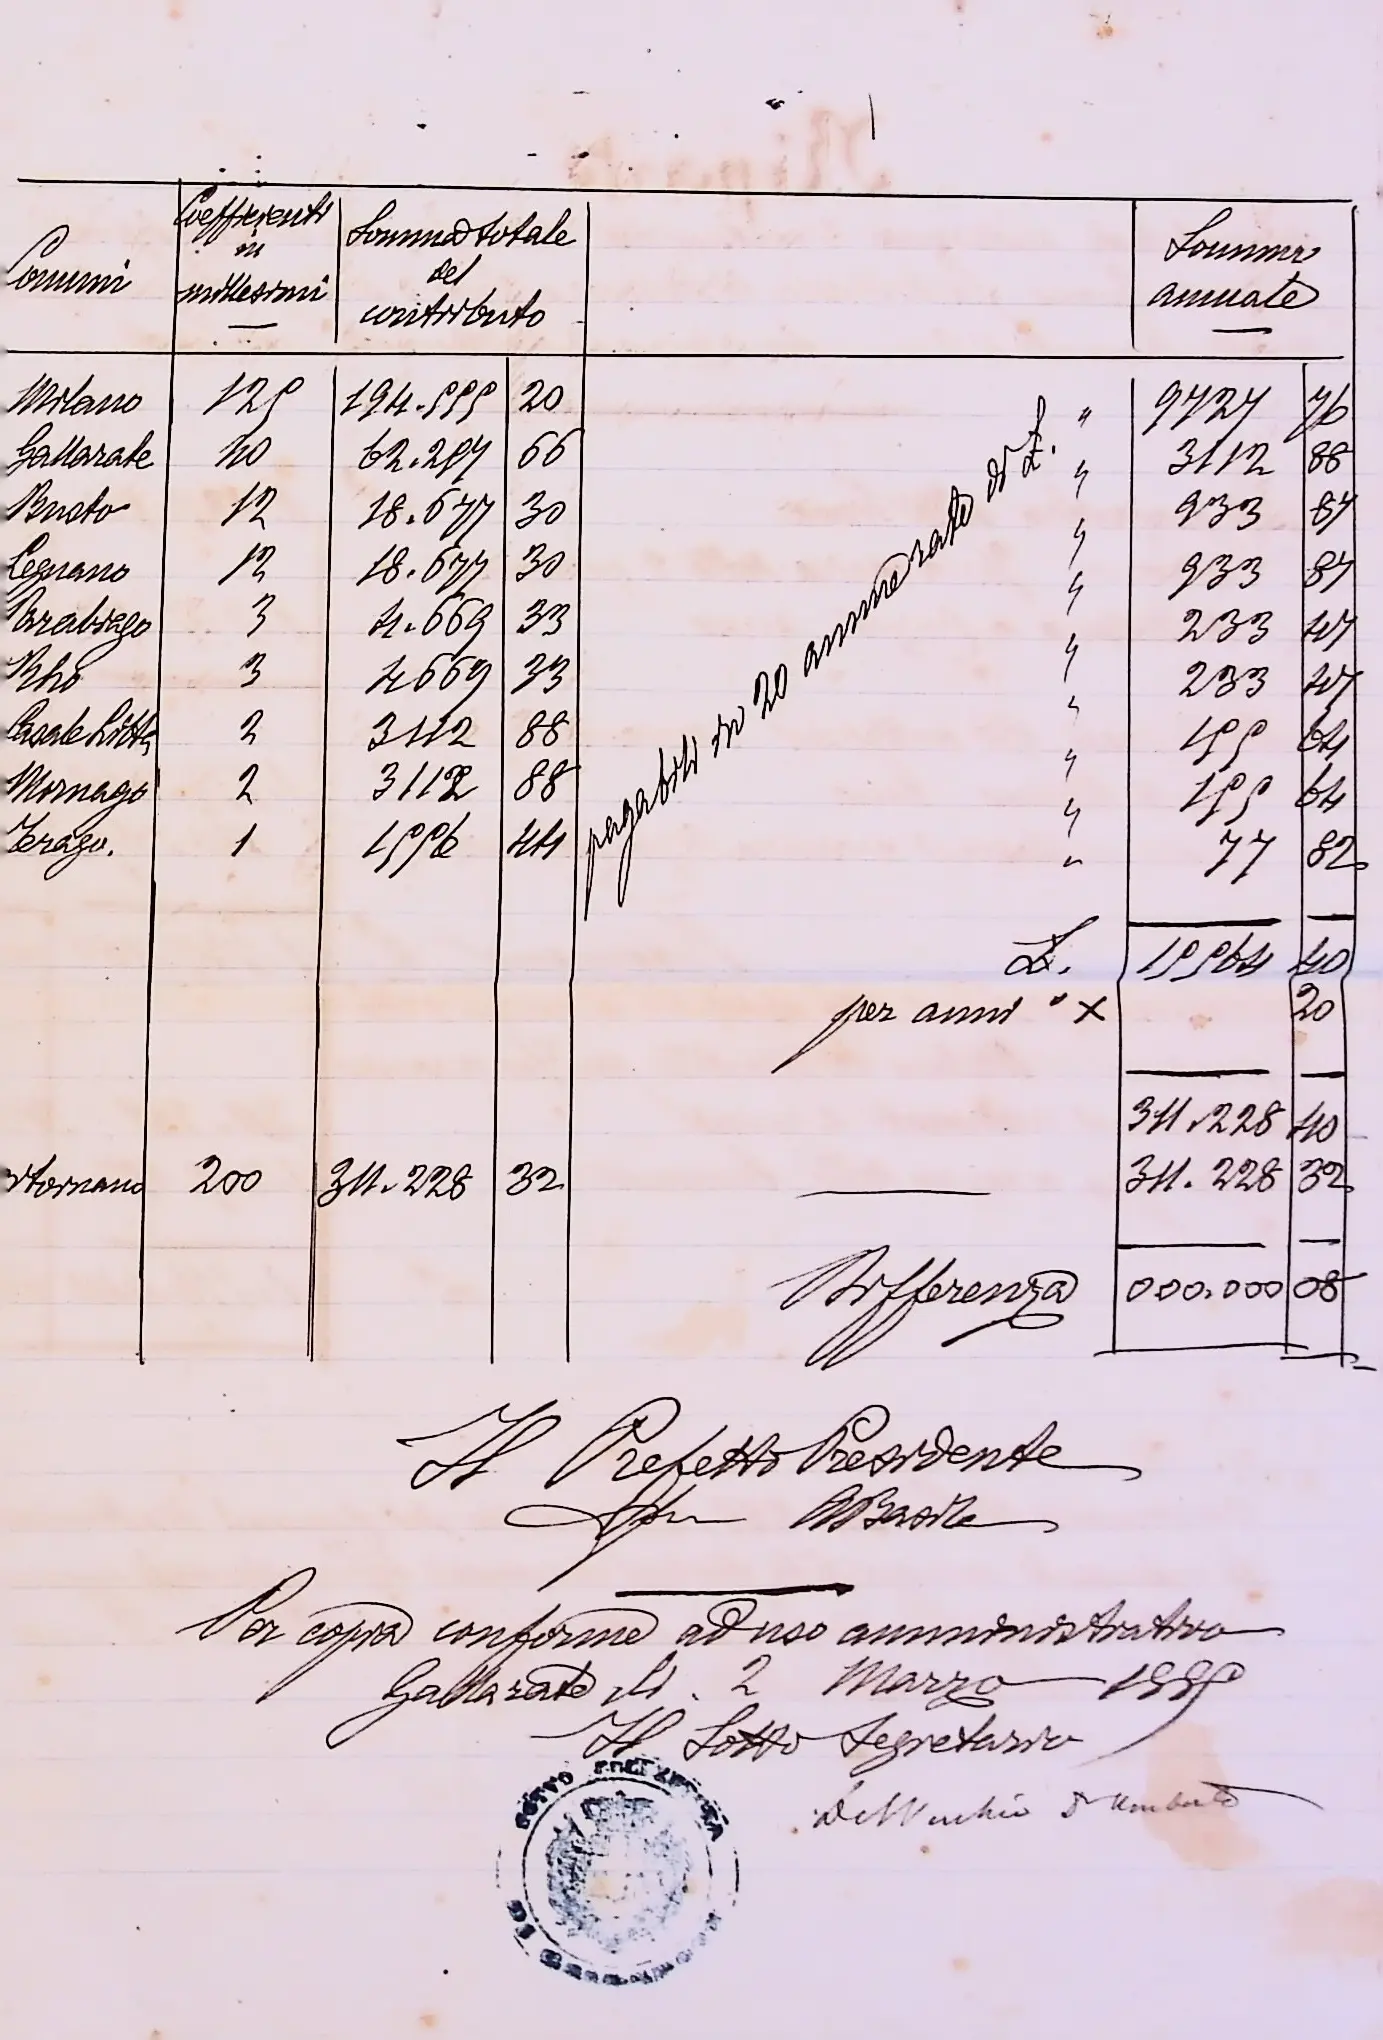 Comuni Coefficienti in millesimi Somma totale del contributo Somma annuale
Milano 125 194.555 20 " 9727 76
Gallarate 40 62.257 66 " 3112 88
Busto 12 18.677 30 " 933 87
Legnano 12 18.677 30 " 933 87
Parabiago 3 4.669 33 " 233 47
Rho 3 4669 33 " 233 47
Casale Litta 2 3112 88 " 155 64
Mornago 2 3112 88 " 155 64
Jerago. 1 1556 44 " 77 82
pagabili in 20 annue rate di L.
L. 15564 40
per anni " X 20
311.228 40
rtornano 200 311.228 32 311.228 32
Differenza 000.000 08
Il Prefetto Presidente
A Basile
Per copia conforme ad uso amministrativo
Gallarate li. 2 Marzo 1885
Il Sotto Segretario
SOTTO PREFETTURA